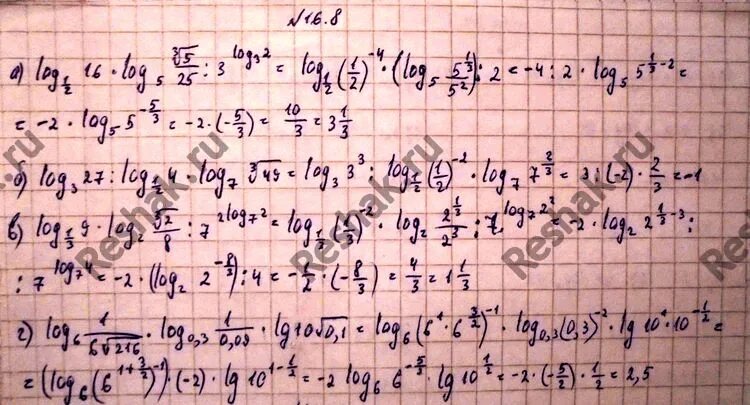 №16.8
а) log_{1/2} 16 · log_5 ∛5/25 : 3^{log_3 2} = log_{1/2} (1/2)^{-4} · (log_5 5^{1/3}/5^2) : 2 = -4 : 2 · log_5 5^{1/3-2} =
= -2 · log_5 5^{-5/3} = -2 · (-5/3) = 10/3 = 3 1/3
б) log_3 27 : log_{1/2} 4 · log_7 ∛49 = log_3 3^3 : log_{1/2} (1/2)^{-2} · log_7 7^{2/3} = 3 : (-2) · 2/3 = -1
в) log_{1/3} 9 · log_2 ∛2/8 : 7^{2log_7 2} = log_{1/3} (1/3)^{-2} · log_2 2^{1/3}/2^3 : 7^{log_7 2^2} = -2 · log_2 2^{1/3-3} :
: 7^{log_7 4} = -2 · (log_2 2^{-8/3}) : 4 = -1/2 · (-8/3) = 4/3 = 1 1/3
г) log_6 1/(6√216) · log_{0,3} 1/0,09 · lg 10√0,1 = log_6 (6^1 · 6^{3/2})^{-1} · log_{0,3} (0,3)^{-2} · lg 10^1 · 10^{-1/2} =
= (log_6 (6^{1+3/2})^{-1}) · (-2) · lg 10^{1-1/2} = -2 log_6 6^{-5/2} · lg 10^{1/2} = -2 · (-5/2) · 1/2 = 2,5
Reshak.ru
Reshak.ru
Reshak.ru